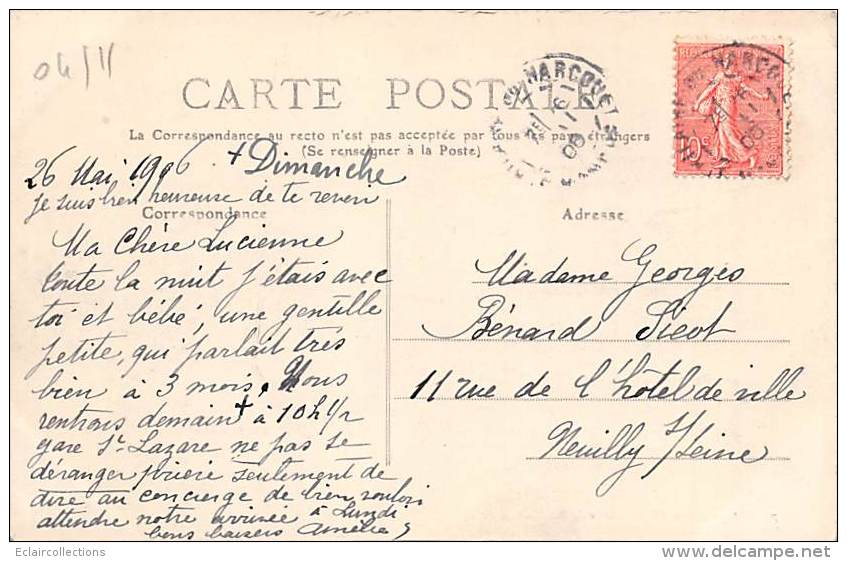 04/11
CARTE POSTALE
La Correspondance au recto n'est pas acceptée par tous les pays étrangers
(Se renseigner à la Poste)
26 Mai 1906 + Dimanche
je suis bien heureuse de te revoir
Correspondance
Adresse
Ma Chère Lucienne
toute la nuit j'étais avec
toi et bébé, une gentille
petite, qui parlait très
bien à 3 mois. Nous
rentrons demain + à 10h
gare St Lazare ne pas se
déranger prière seulement de
dire au concierge de bien vouloir
attendre notre arrivée à Lundi
bons baisers Amélie
Madame Georges
Bénard Sieot
11 rue de l'hôtel de ville
Neuilly s/Seine
10c
Eclaircollections
www.delcampe.net